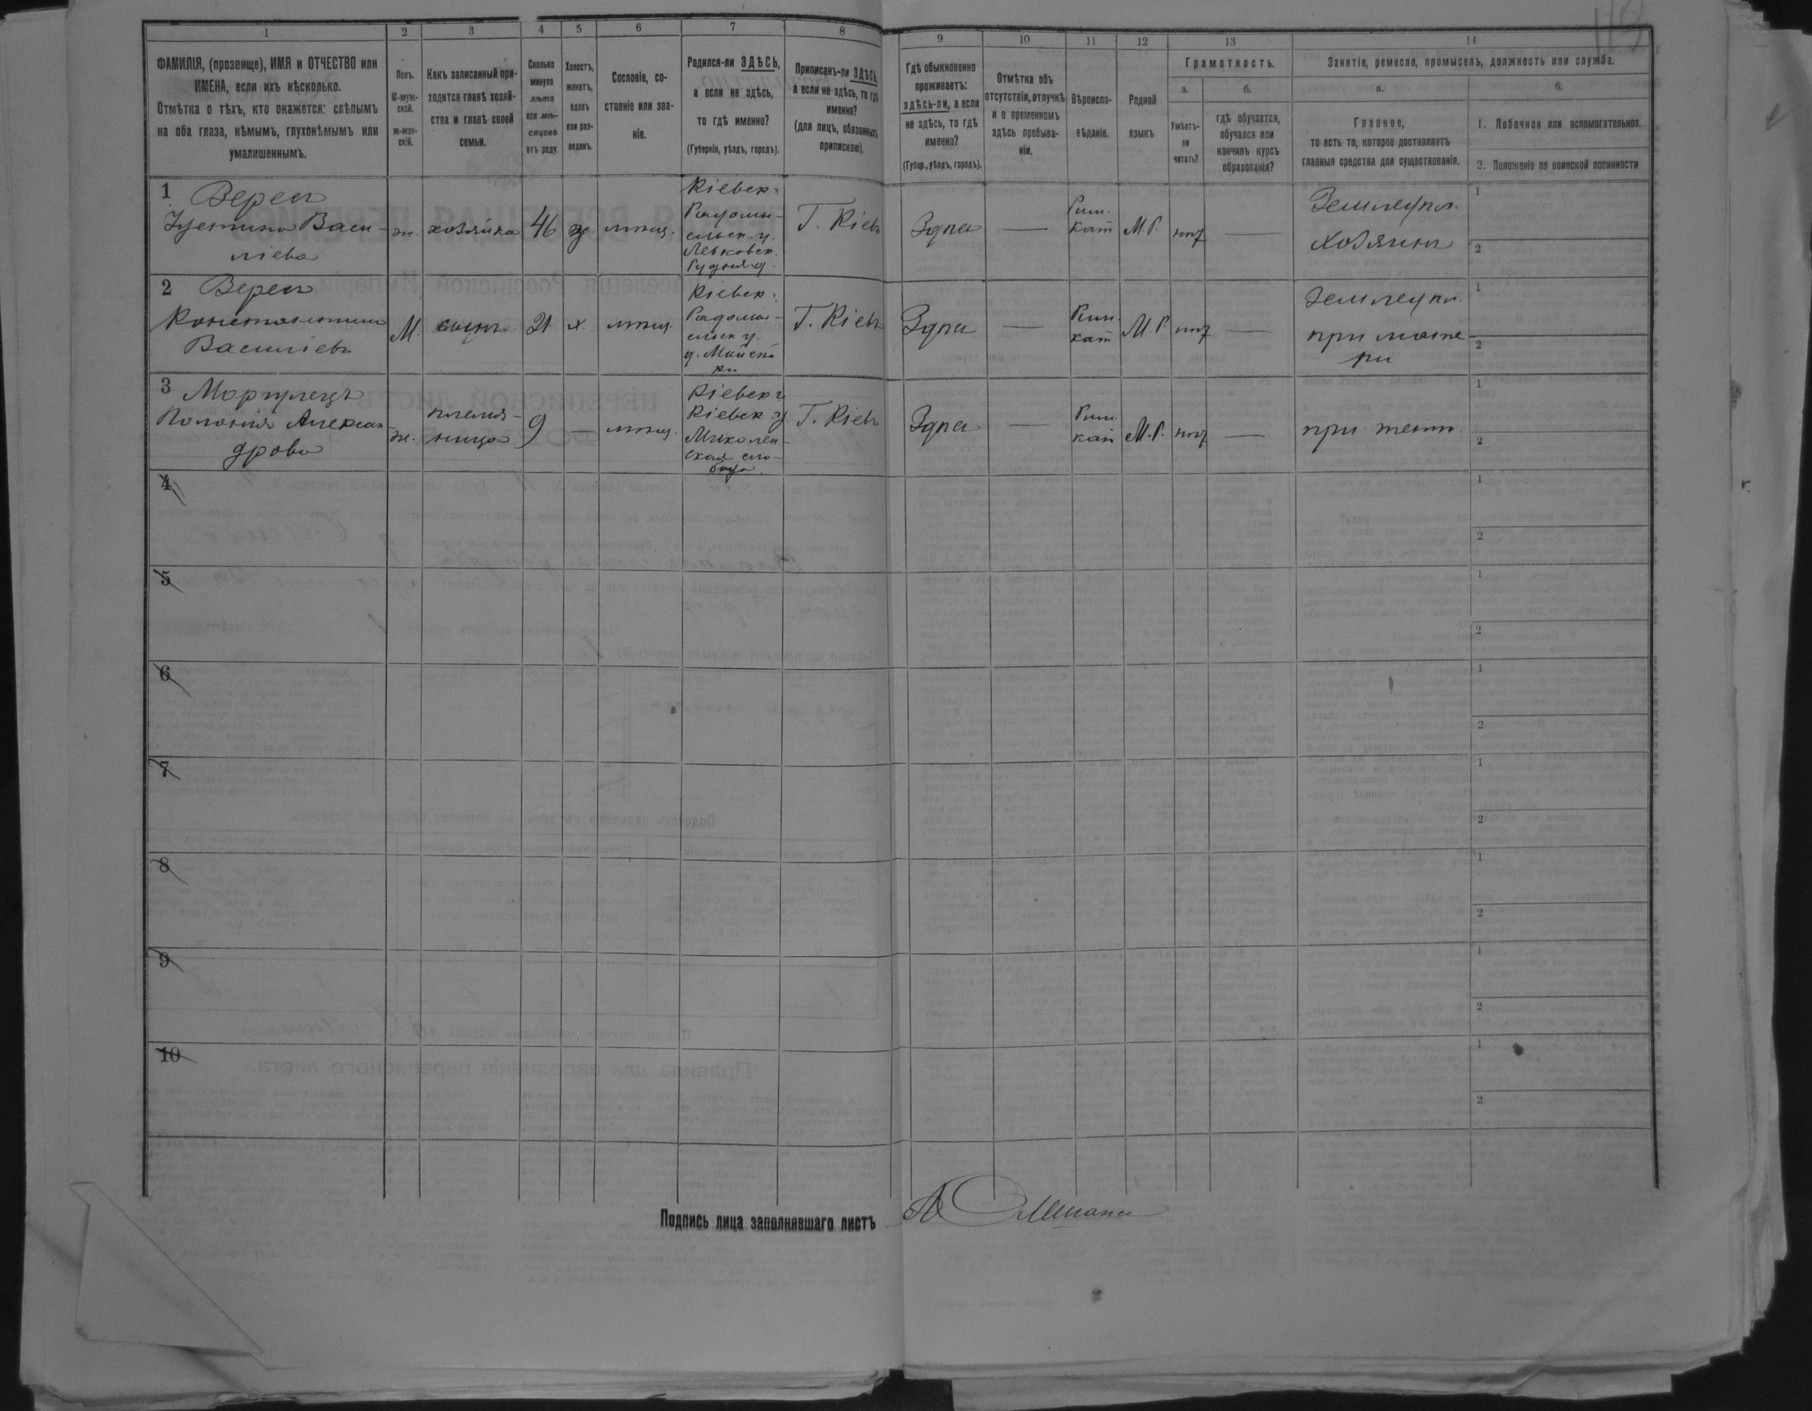 1 2 3 4 5 6 7 8 9 10 11 12 13 14
ФАМИЛІЯ, (прозвище), ИМЯ и ОТЧЕСТВО или
ИМЕНА, если ихъ нѣсколько.
Отмѣтка о тѣхъ, кто окажется: слѣпымъ
на оба глаза, нѣмымъ, глухонѣмымъ или
умалишеннымъ.
Полъ.
М-муж-
ской.
ж-жен-
скій.
Какъ записанный при-
ходится главѣ хозяй-
ства и главѣ своей
семьи.
Сколько
минуло
лѣтъ
или мѣ-
сяцевъ
отъ роду.
Холостъ,
женатъ,
вдовъ
или раз-
веденъ.
Сословіе, со-
стояніе или зва-
ніе.
Родился-ли ЗДѢСЬ,
а если не здѣсь,
то гдѣ именно?
(Губернія, уѣздъ, городъ).
Приписанъ-ли ЗДѢСЬ,
а если не здѣсь, то гдѣ
именно?
(для лицъ, обязанныхъ
припискою).
Гдѣ обыкновенно
проживаетъ:
здѣсь-ли, а если
не здѣсь, то гдѣ
именно?
(Губер., уѣздъ, городъ).
Отмѣтка объ
отсутствіи, отлучкѣ
и о временномъ
здѣсь пребыва-
ніи.
Вѣроиспо-
вѣданіе.
Родной
языкъ
Грамотность.
а.
Умѣетъ-
ли
читать?
б.
гдѣ обучается,
обучался или
кончилъ курсъ
образованія?
Занятіе, ремесло, промыселъ, должность или служба.
а.
Главное,
то есть то, которое доставляетъ
главныя средства для существованія.
б.
1. Побочное или вспомогательное.
2. Положеніе по воинской повинности
1 Верес
Васи-
ліева
ж.
хозяйка
46
мѣщ.
Кіевск.
Радомы-
сльск. у.
Левковск.
Рудня
Г. Кіевъ
Здѣсь
—
Рим.
кат
М.Р.
нѣт
—
Землед.
Хозяинъ
1
2
2 Верес
Константинъ
Василіевъ
М.
сынъ
21
х.
мѣщ.
Кіевск.
Радомы-
сльск у.
Г. Кіевъ
Здѣсь
—
Рим.
кат
М.Р.
нѣт
—
Землед.
при мате
ри
1
2
3
Полонія Алексан
дрова
ж.
племя-
ница
9
—
мѣщ.
Кіевск
Кіевск у.
сло-
бода
Г. Кіевъ
Здѣсь
—
Рим.
кат
М.Р.
нѣт
—
при тетк.
1
2
4
1
2
5
1
2
6
1
2
7
1
2
8
1
2
9
1
2
10
1
2
Подпись лица заполнявшаго листъ